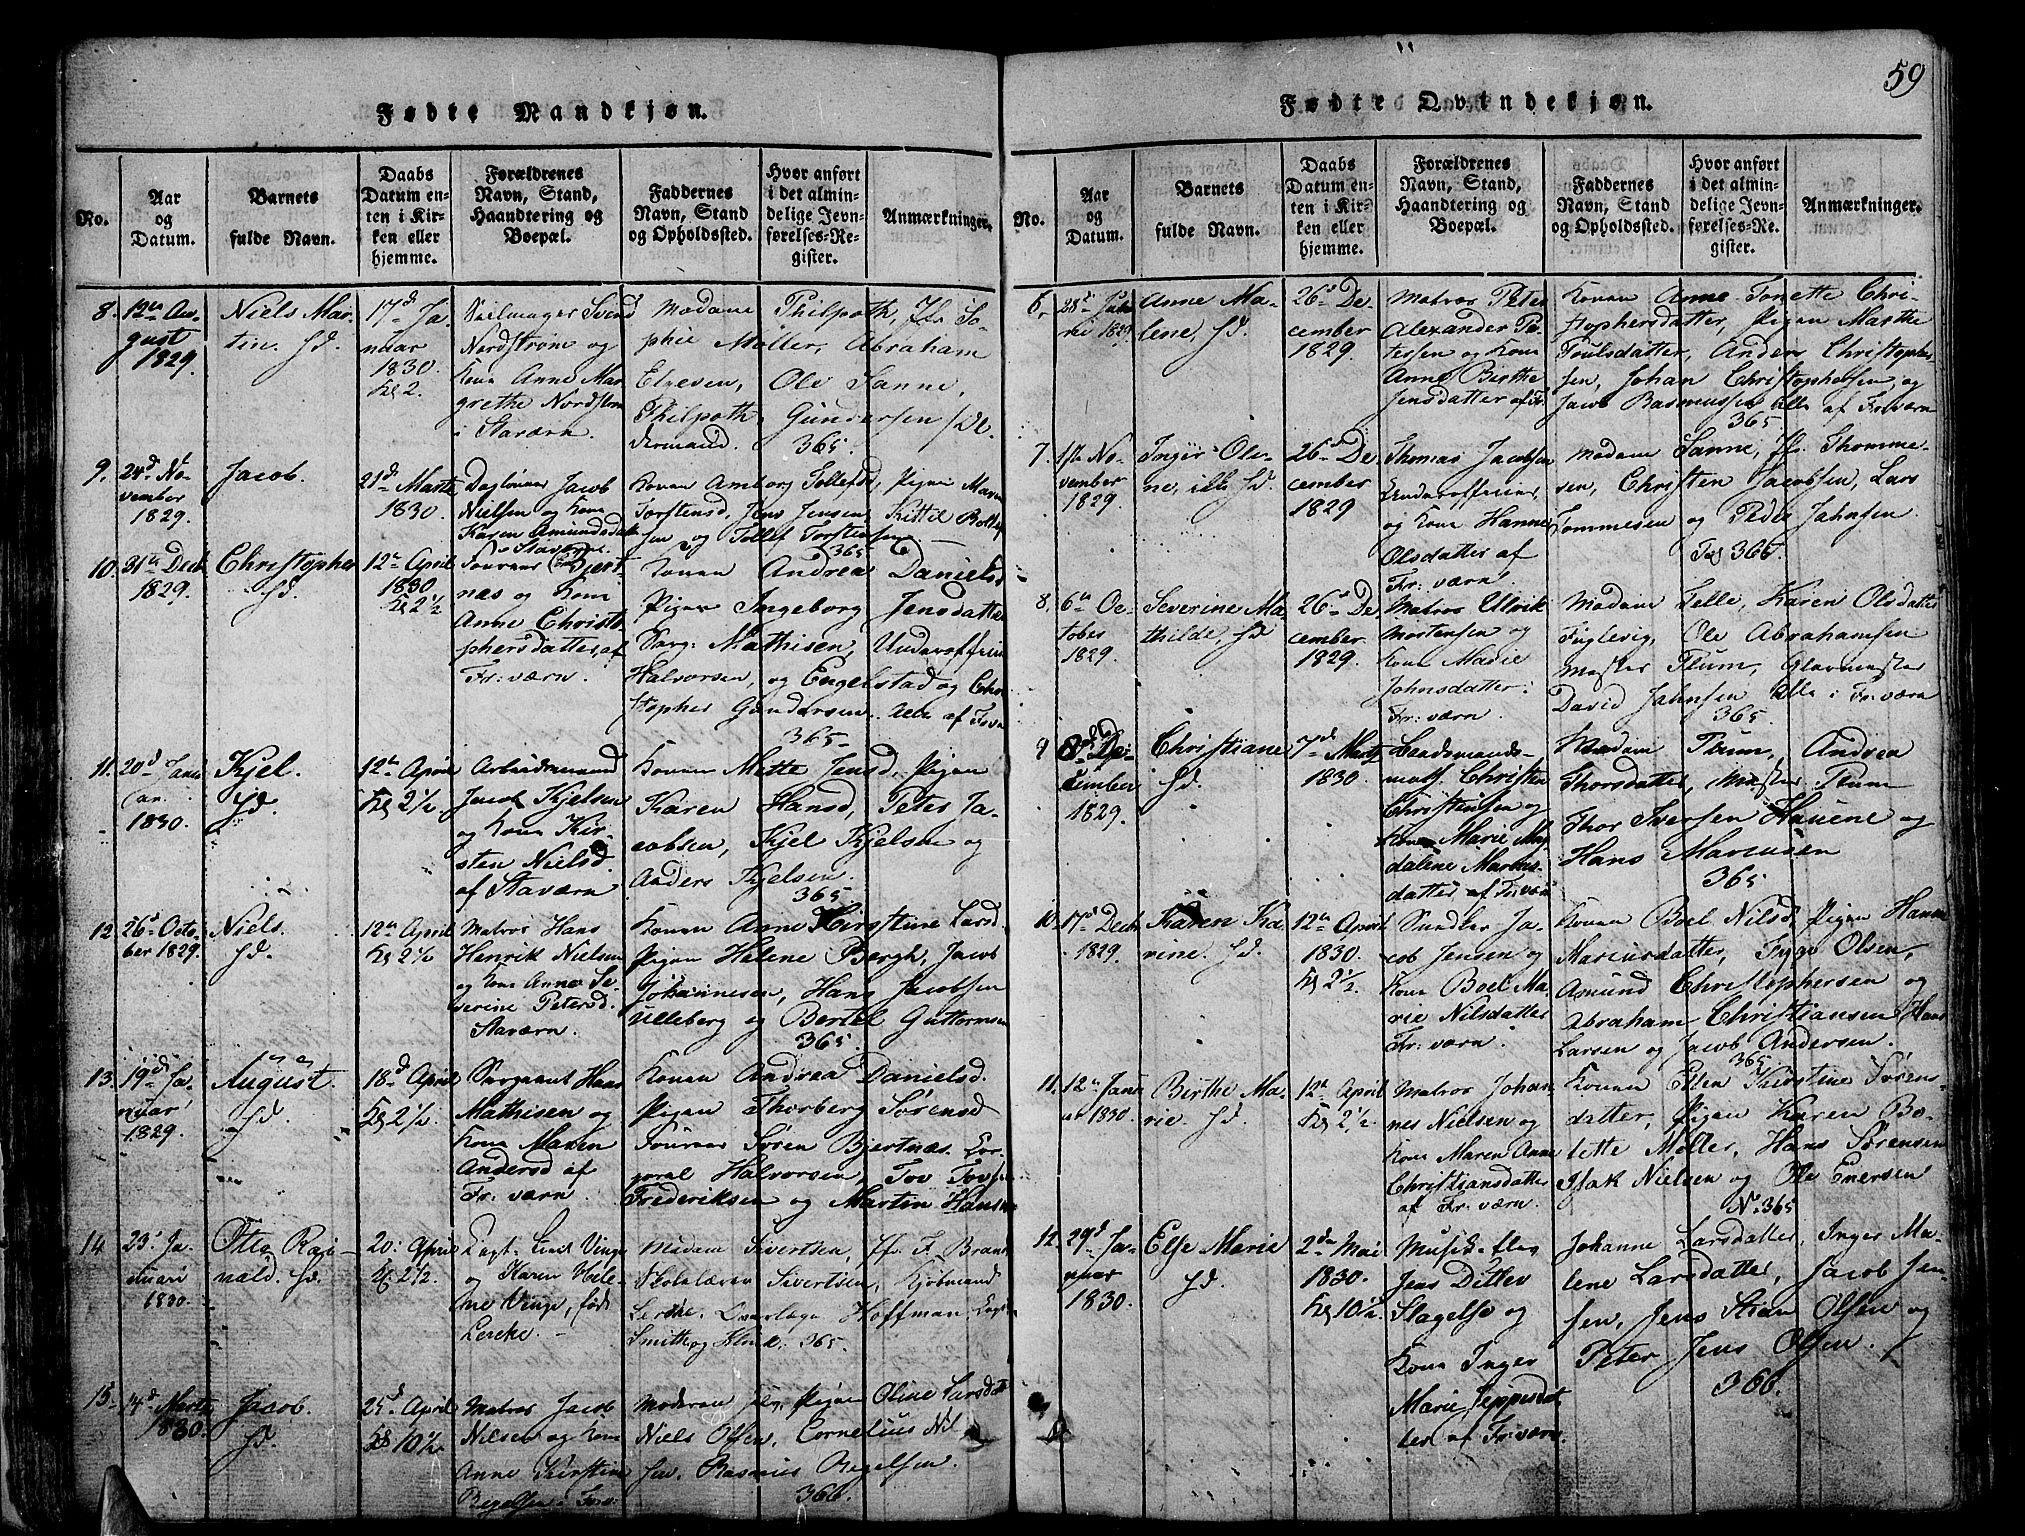 59
Fødte Mandkjøn.
No.
Aar
og
Datum.
Barnets
fulde Navn.
Daabs
Datum en-
ten i Kir-
ken eller
hjemme.
Forældrenes
Navn, Stand,
Haandtering og
Boepæl.
Faddernes
Navn, Stand
og Opholdssted.
Hvor anført
i det almin-
delige Jevn-
førelses-Re-
gister.
Anmærkninger.
8.
12te Au-
gust
1829.
Niels Mar-
tin. hd.
17d Ja-
nuar
1830
Kl 2.
Svend
Nordstrøm og
Kone Anne Mar-
grethe Nordstrøm
i Staværn.
Madame Philpoth, Jfr. So-
phie Møller, Abraham
Ole Sanne,
Philpoth, Gundersen
365
9.
24d No-
vember
1829.
Jacob.
21d Marts
1830.
Daglønner Jacob
Nielsen og Kone
Karen Amundsdatt.
Staværn.
Konen Amborg Tollefsd, Pigen Maren
Torstensd, Jens Jensen, Kittil
sen og Tollef Torstensen
365
10.
31te Decb.
1829.
Christopher
hd.
12te April
1830
Kl 2½
Fourer Bjert-
næs og Kone
Anne Christo-
phersdatter, af
Fr: værn.
Konen Andrea Danielsd
Pigen Ingeborg Jensdatter
Sarg: Mathisen, Underofficier
Halvorsen, og Engelstad og Chri-
stopher Gundersen. Alle af Frværn
365
11.
20d Janu
ar.
1830.
Kjel.
hd.
12te April
Kl 2½
Arbeidsmand
Jacob Kjelsen
og Kone Kir-
sten Nielsd.
af Staværn
Konen Mette Jensd, Pigen
Karen Hansd, Peter Ja-
cobsen, Kjel Kjelsen og
Anders Kjelsen.
365
12.
26d Octo-
ber 1829.
Niels.
hd.
12te April
Kl 2½
Matros Hans
Henrik Nielsen
og Kone Anne Se-
verine Petersd.
Staværn.
Konen Anne Kirstine Larsd.
Pigen Helene Bergh, Jacob
Johannesen, Hans Jacobsen
Ulleberg og Bertel Guttormsen
365.
13.
19d Ja-
nuar
1829.
August
hd.
18d April
Kl 2½.
Sargeant Hans
Mathisen og
Kone Maren
Andersd af
Fr: værn.
Konen Andrea Danielsd.
Pigen Thorberg Sørensd
Fourer Søren Bjertnæs, Cor-
poral Halvorsen, Tov
Frederiksen og Martin Hansen
14
23d Ja-
nuari
1830.
Otto Ragi-
nald. hd.
20: April
Kl 2½.
Capt: Vinge
og Karen
Vinge, født
Lerche.
Madam Sivertsen, Jfr. F.
Skolelærer Sivertsen, Kjøbmand
Lerche. Hoffman,
Smith og 365
15.
4d Marts
1830.
Jacob.
hd.
25d April
Kl 10½.
Matros Jacob
Nilsen og Kone
Anne Kirstine
Moderen Pigen Oline Larsdatt
Niels Olsen, Cornelius Nil-
sen, Rasmus
366.
Fødte Qvindekjøn.
No.
Aar
og
Datum.
Barnets
fulde Navn.
Daabs
Datum en-
ten i Kir-
ken eller
hjemme.
Forældrenes
Navn, Stand,
Haandtering og
Boepæl.
Faddernes
Navn, Stand
og Opholdssted.
Hvor anført
i det almin-
delige Jevn-
førelses-Re-
gister.
Anmærkninger.
6.
28d
1829.
Anne Ma-
lene, hd.
26d De-
cember
1829.
Matros Peter
Alexander Pe-
tersen og Kone
Anne Birthe
Jensdatter af Fr.
Konen Anne Tonette Chri-
stophersdatter, Pigen Marthe
Poulsdatter, Anders Christopher-
sen, Johan Christophersen, og
Jacob Rasmussen alle af Fr:værn
365
7.
No-
vember
1829.
Inger Ole-
ne, hd.
26d De-
cember
1829
Thomas Jacobsen
Underofficier,
og Kone Hanne
Olsdatter af
Fr: værn.
Madam Sanne, Jfr. Thomme-
sen, Christen Jacobsen, Lars
Tommesen og Peder Jahnsen.
365.
8.
6te Oc-
tober
1829.
Severine Ma-
thilde, hd.
26d De-
cember
1829.
Matros Ulrik
Mortensen og
Kone Marie
Johnsdatter.
Fr: værn.
Madam Telle, Karen Olsdatter
Fuglevig, Ole Abrahamsen
mester Thum, Glarmester
David Jahnsen alle i Fr:værn
365.
9
8de De-
cember
1829.
Christiane
hd.
7d Marts
1830.
Christen
Christensen og
Kone Marie Mag-
dalene Marcus-
datter af Fr: værn
Madam Thum, Andrea
Thorsdatter, Mester Thum
Thor Iversen Hauene og
Hans Marcusen
365
10.
17d Decbr
1829.
Karen Ka-
rine. hd.
12te April
1830.
Kl 2½.
Ja-
cob Jensen og
Kone Boel Ma-
rie Nilsdatter
Fr: værn.
Konen Boel Nilsd, Pigen Hanne
Mariusdatter, Tyge Olsen,
Amund Christophersen og
Abraham Christiansen, Hans
Larsen og Jacob Andersen.
365
11.
12te Janu
ar 1830.
Birthe Ma-
rie. hd.
12te April
Kl 2½.
Matros Johan-
nes Nielsen og
Kone Maren Anne
Christiansdatter
af Fr: værn.
Konen Ellen Kirstine Sørens-
datter, Pigen Karen Bo-
lette Møller, Hans Sørensen
Isak Nielsen og Ole Enersen
No 365
12.
29d Ja-
nuar
1830.
Else Marie
hd.
2den Mai
1830.
Kl 10½.
Jens Ditlev
Slagelse og
Kone Inger
Marie Jeppesdat-
ter af Fr: værn.
Johanne Larsdatter, Inger Ma-
lene Larsdatter, Jacob Jan-
sen, Jens Olsen og
Peter Jens Olsen.
366.